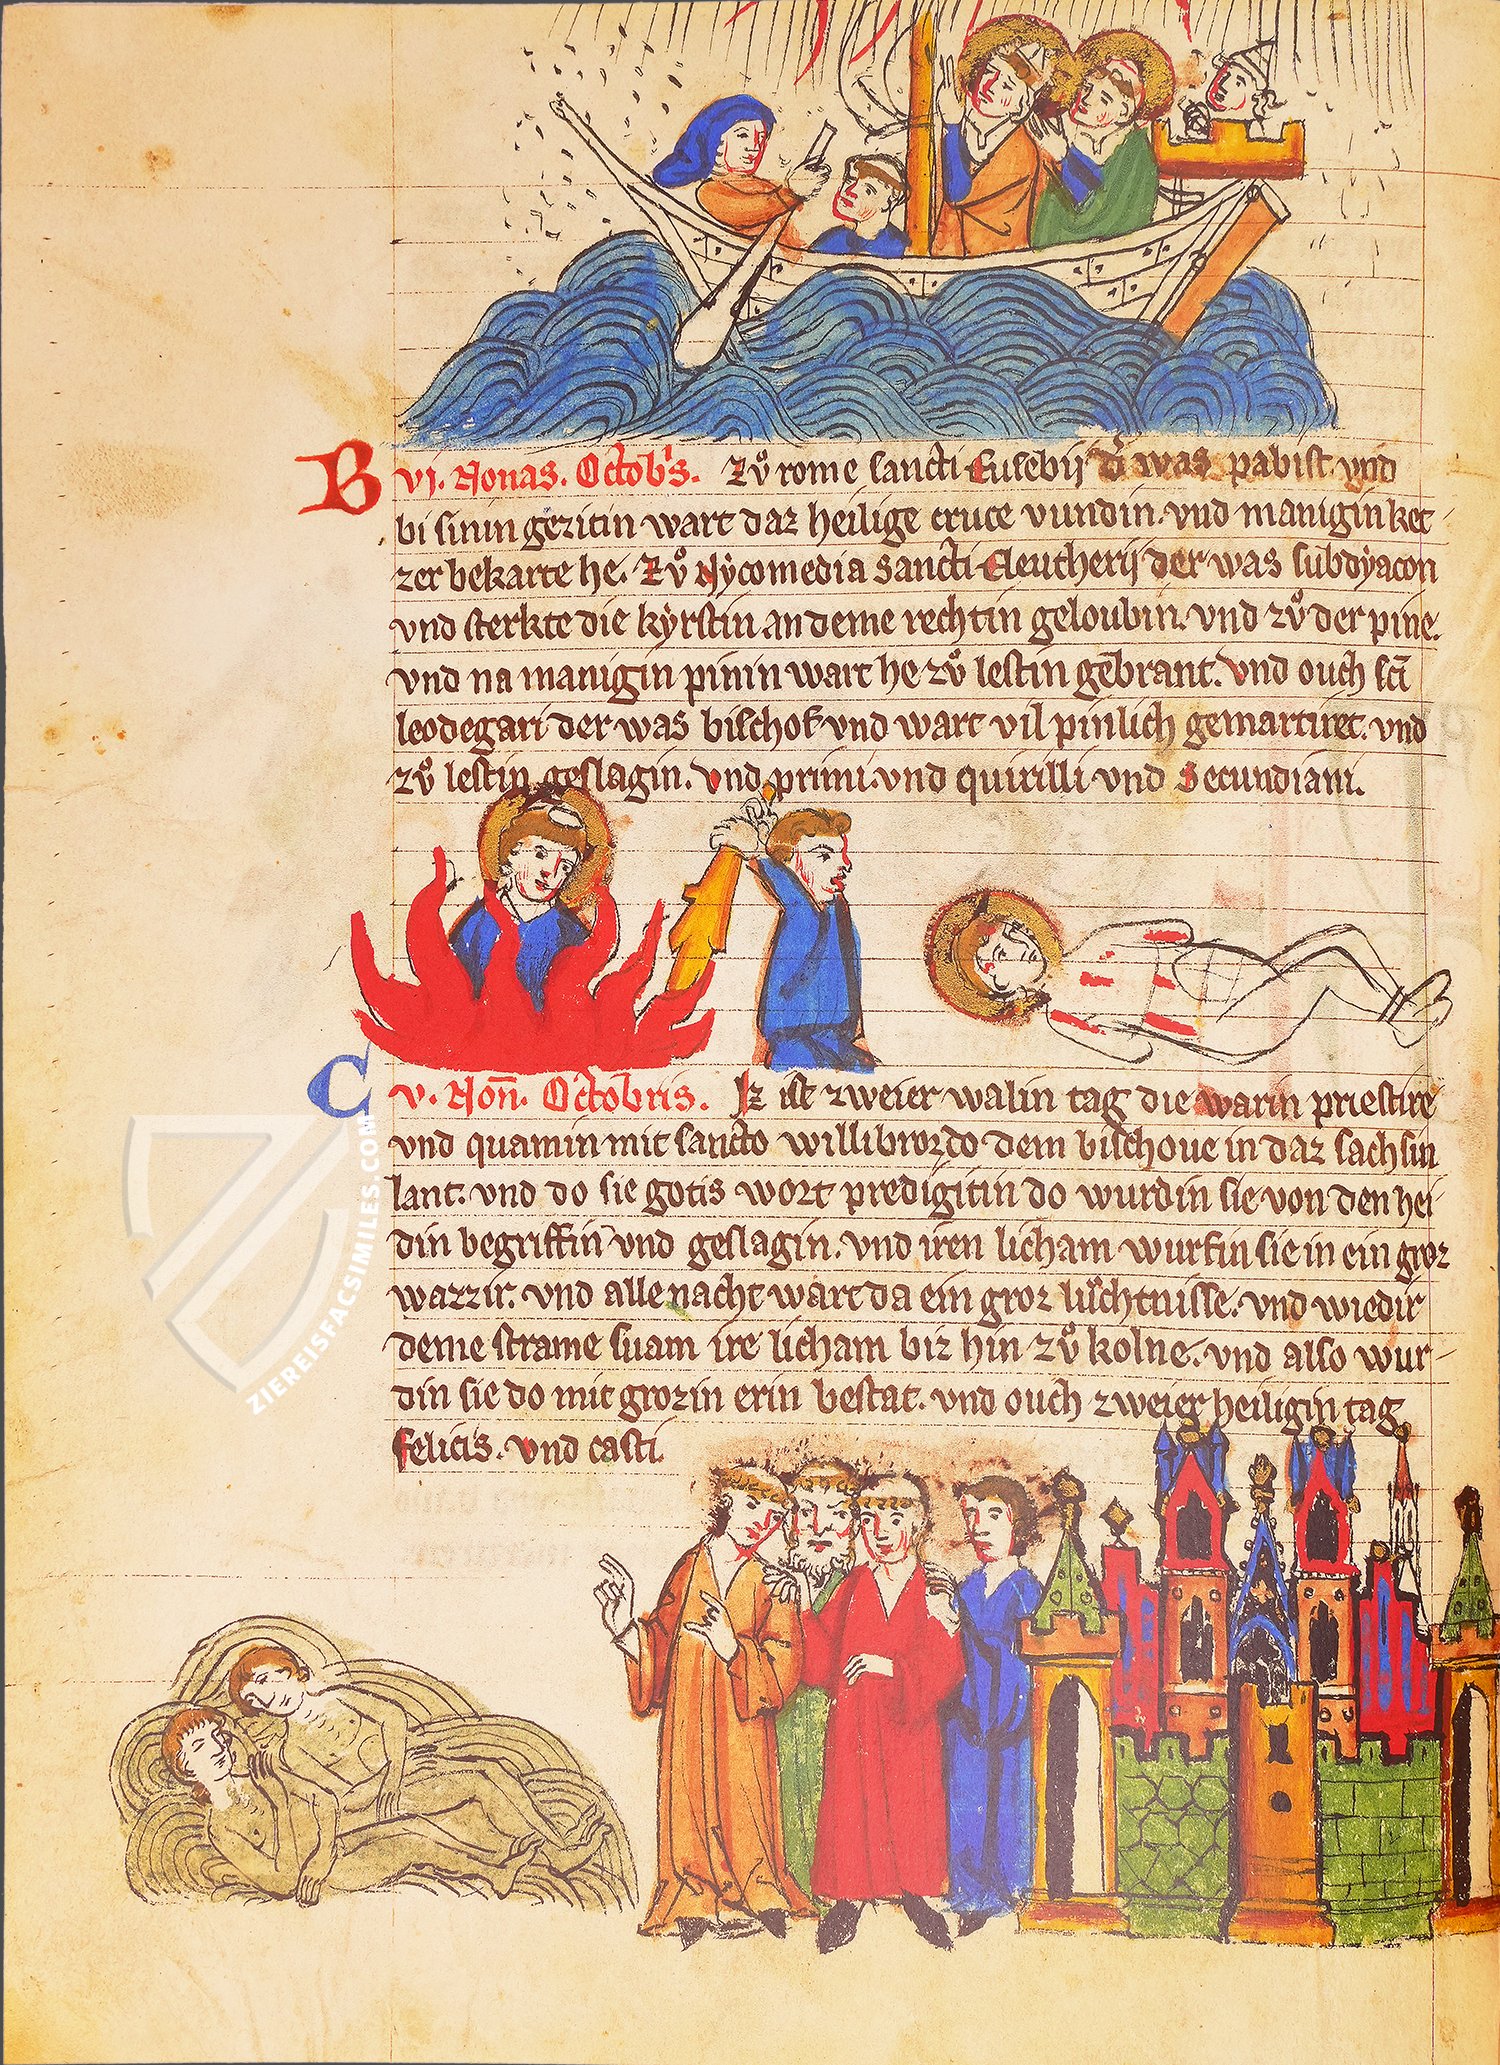 B vi. Nonas. Octobris. Zů rome sancti Eusebij d' was pabist. vnd
bi sinin gezitin wart daz heilige cruce vundin. vnd manigin ket
zer bekarte he. Zů Nycomedia sancti Eleutherij der was subdyacon
vnd sterkte die kyrstin an deme rechtin geloubin. vnd zů der pine.
vnd na manigin pinin wart he zů lestin gebrant. vnd ouch sct̄
leodegari der was bischof vnd wart vil pinlich gemartiret. vnd
zů lestin geslagin. vnd primi. vnd quirilli vnd Secundiani.
C v. Non̄. Octobris. Iz ist zweier walin tag die warin priestire
vnd quamin mit sancto willibrordo dem bischoue in daz sachsin
lant. vnd do sie gotis wort predigitin do wurdin sie von den hei
din begriffin vnd geslagin. vnd iren licham wurfin sie in ein groz
wazzir. vnd alle nacht wart da ein groz lůchtnisse. vnd wiedir
deme strame suam ire licham biz hin zů kolne. vnd also wur-
din sie do mit grozin erin bestat. vnd ouch zweier heiligin tag
felicis. vnd casti.
ZIEREISFACSIMILES.COM